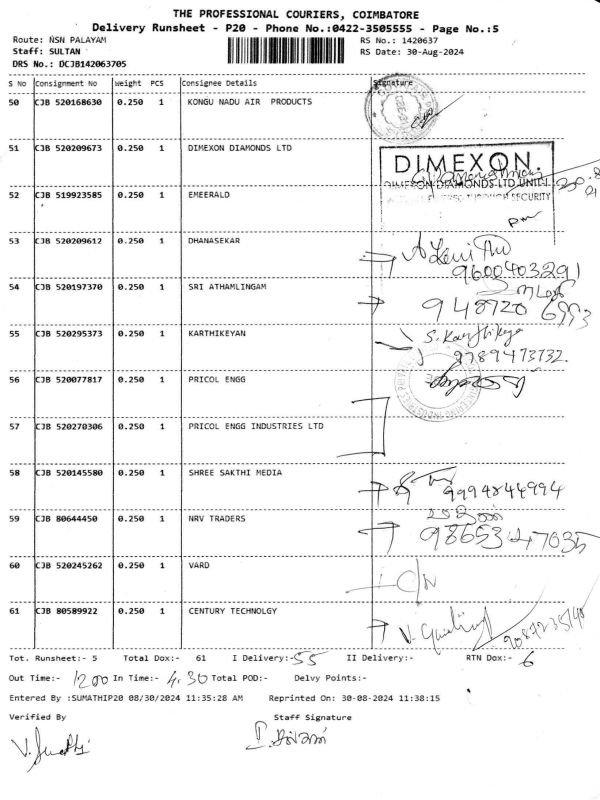 THE PROFESSIONAL COURIERS, COIMBATORE
Delivery Runsheet - P20 - Phone No.:0422-3505555 - Page No.:5
Route: NSN PALAYAM RS No.: 1420637
Staff: SULTAN RS Date: 30-Aug-2024
DRS No.: DCJB142063705
S No Consignment No Weight PCS Consignee Details Signature
50 CJB 520168630 0.250 1 KONGU NADU AIR PRODUCTS
51 CJB 520209673 0.250 1 DIMEXON DIAMONDS LTD
DIMEXON.
DIMEXON DIAMONDS LTD UNIT-I
SECURITY
52 CJB 519923585 0.250 1 EMEERALD
53 CJB 520209612 0.250 1 DHANASEKAR
9600403291
54 CJB 520197370 0.250 1 SRI ATHAMLINGAM
948720
55 CJB 520295373 0.250 1 KARTHIKEYAN
S. Karthikeya
9789473732.
56 CJB 520077817 0.250 1 PRICOL ENGG
57 CJB 520270306 0.250 1 PRICOL ENGG INDUSTRIES LTD
58 CJB 520145580 0.250 1 SHREE SAKTHI MEDIA
9994844994
59 CJB 80644450 0.250 1 NRV TRADERS
60 CJB 520245262 0.250 1 VARD
61 CJB 80589922 0.250 1 CENTURY TECHNOLGY
Tot. Runsheet:- 5 Total Dox:- 61 I Delivery:- 55 II Delivery:- RTN Dox:- 6
Out Time:- 1200 In Time:- 4.30 Total POD:- Delvy Points:-
Entered By :SUMATHIP20 08/30/2024 11:35:28 AM Reprinted On: 30-08-2024 11:38:15
Verified By Staff Signature